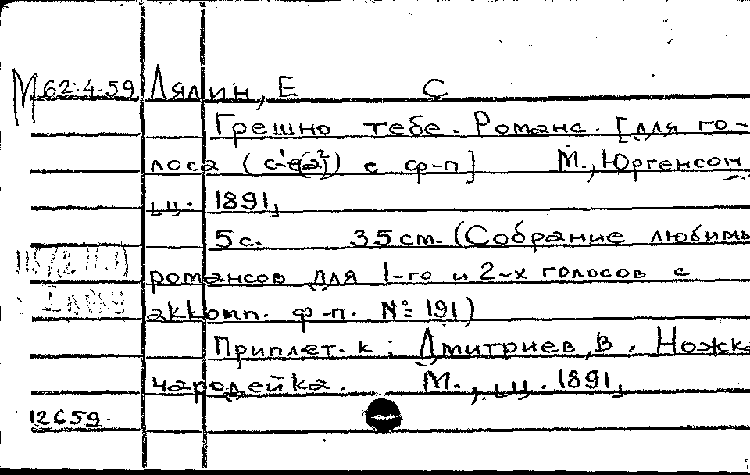 М 62-4-59 Лялин, Е С
Грешно тебе. Романс. [для го-
лоса (с¹-е²) с ф-п] М., Юргенсон,
ц. 1891,
5 с. 35 cm. (Собрание любимы
романсов для 1-го и 2-х голосов с
аккомп. ф-п. № 191)
Приплет. к: Дмитриев, В. Ножка
чародейка. М., ц. 1891,
12659